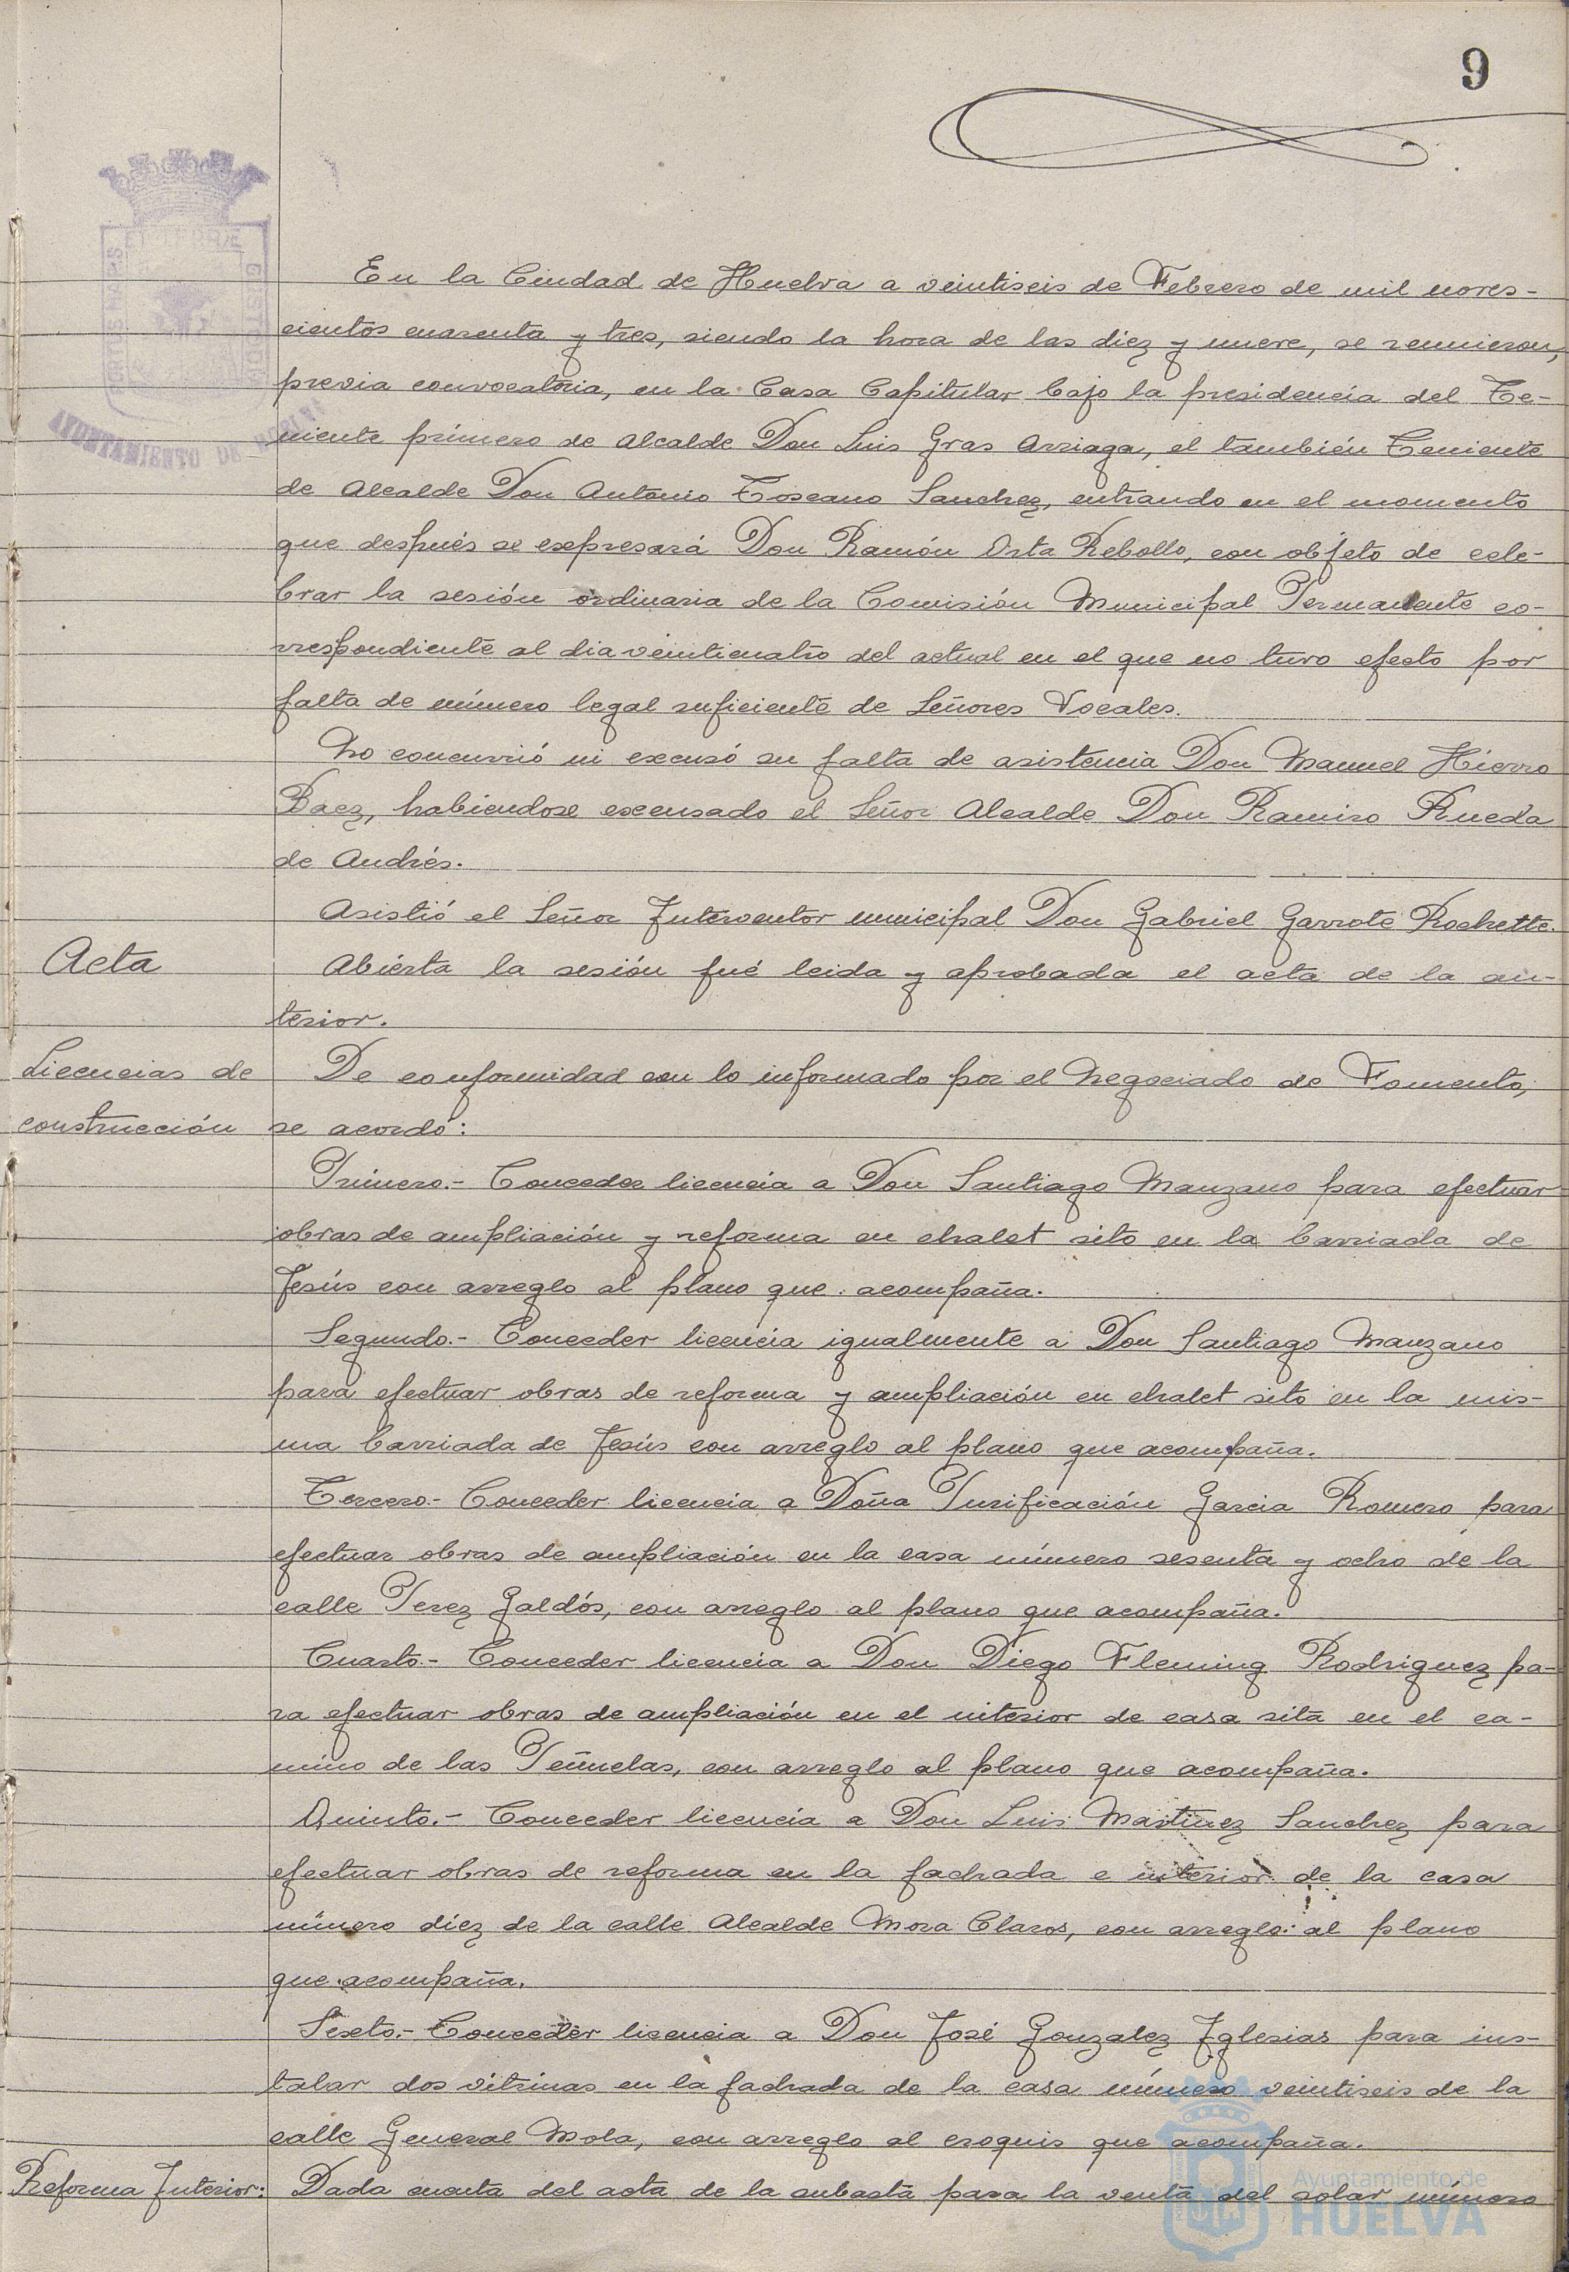 9
En la Ciudad de Huelva a veintiseis de Febrero de mil noves-
cientos cuarenta y tres, siendo la hora de las diez y nueve, se reunieron,
previa convocatoria, en la Casa Capitular bajo la presidencia del Te-
niente primero de Alcalde Don Luis Gras Arriaga, el también Teniente
de Alcalde Don Antonio Toscano Sanchez, entrando en el momento
que después se expresará Don Ramón Orta Rebollo, con objeto de cele-
brar la sesión ordinaria de la Comisión Municipal Permanente co-
rrespondiente al dia veinticuatro del actual en el que no tuvo efecto por
falta de número legal suficiente de Señores Vocales.
No concurrió ni excusó su falta de asistencia Don Manuel Hierro
Baez, habiendose excusado el Señor Alcalde Don Ramiro Rueda
de Andrés.
Asistió el Señor Interventor municipal Don Gabriel Garrote Rochette.
Acta
Abierta la sesión fué leida y aprobada el acta de la an-
terior.
Licencias de
construcción
De conformidad con lo informado por el Negociado de Fomento,
se acordó:
Primero.- Conceder licencia a Don Santiago Manzano para efectuar
obras de ampliación y reforma en chalet sito en la barriada de
Jesús con arreglo al plano que acompaña.
Segundo.- Conceder licencia igualmente a Don Santiago Manzano
para efectuar obras de reforma y ampliación en chalet sito en la mis-
ma barriada de Jesús con arreglo al plano que acompaña.
Tercero.- Conceder licencia a Doña Purificación Garcia Romero para
efectuar obras de ampliación en la casa número sesenta y ocho de la
calle Perez Galdós, con arreglo al plano que acompaña.
Cuarto.- Conceder licencia a Don Diego Fleming Rodriguez pa-
ra efectuar obras de ampliación en el interior de casa sita en el ca-
mino de las Peñuelas, con arreglo al plano que acompaña.
Quinto.- Conceder licencia a Don Luis Martinez Sanchez para
efectuar obras de reforma en la fachada e interior de la casa
número diez de la calle Alcalde Mora Claros, con arreglo al plano
que acompaña.
Sexto.- Conceder licencia a Don José Gonzalez Iglesias para ins-
talar dos vitrinas en la fachada de la casa número veintiseis de la
calle General Mola, con arreglo al croquis que acompaña.
Reforma Interior:
Dada cuenta del acta de la subasta para la venta del solar número
AYUNTAMIENTO DE HUELVA
Ayuntamiento de
HUELVA